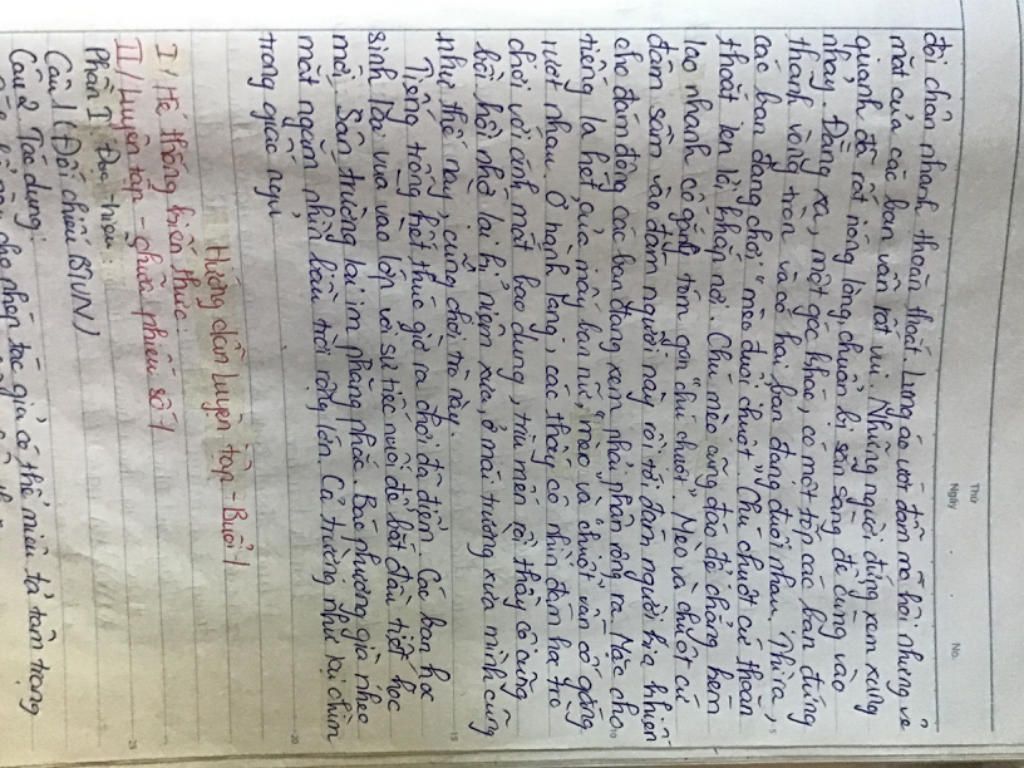 Thứ
Ngày . . No.
đôi chân nhanh thoăn thoắt. Lưng áo ướt đẫm mồ hôi nhưng vẻ
mặt của các bạn vẫn rất vui. Những người đứng xem xung
quanh đã rất nóng lòng, chuẩn bị sẵn sàng để cùng vào
nhảy. Đằng xa, một góc khác, có một tốp các bạn đứng
thành vòng tròn và có hai bạn đang đuổi nhau. Thì ra,
các bạn đang chơi "mèo đuổi chuột". Chú chuột cứ thoăn
thoắt len lỏi khắp nơi. Chú mèo cũng đáo để chẳng kém
lao nhanh cố gắng tóm gọn "chú chuột". Mèo và chuột cứ
đâm sầm vào đám người này rồi tới đám người kia khiến
cho đám đông các bạn đang xem phải phân rộng ra. Mặc cho
tiếng la hét của mấy bạn nữ, "mèo" và "chuột" vẫn cố gắng
rượt nhau. Ở hành lang, các thầy cô nhìn đám học trò
chơi với ánh mắt bao dung, trìu mến rồi thầy cô cũng
bồi hồi nhớ lại kỉ niệm xưa, ở mái trường xưa mình cũng
như thế này, cũng chơi trò này.
Tiếng trống kết thúc giờ ra chơi đã điểm. Các bạn học
sinh lại vừa vào lớp với sự tiếc nuối để bắt đầu tiết học
mới. Sân trường lại im phăng phắc. Bác phượng già nheo
mắt ngắm nhìn bầu trời rộng lớn. Cả trường như lại chìm
trong giấc ngủ.
Hướng dẫn luyện tập - Buổi 1
I/ Hệ thống kiến thức:
II/ Luyện tập - chữa phiếu số 1
Phần I: Đọc - hiểu
Câu 1 (Đối chiếu BTVN)
Câu 2 Tác dụng:
cho thấy tác giả có thể miêu tả tâm trạng